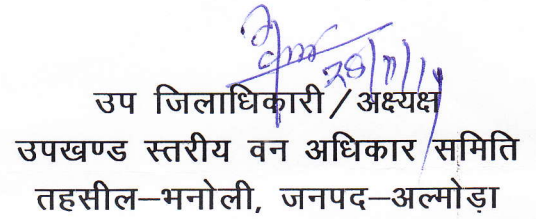 उप जिलाधिकारी/अक्ष्यक्ष
उपखण्ड स्तरीय वन अधिकार समिति
तहसील–भनोली, जनपद–अल्मोड़ा